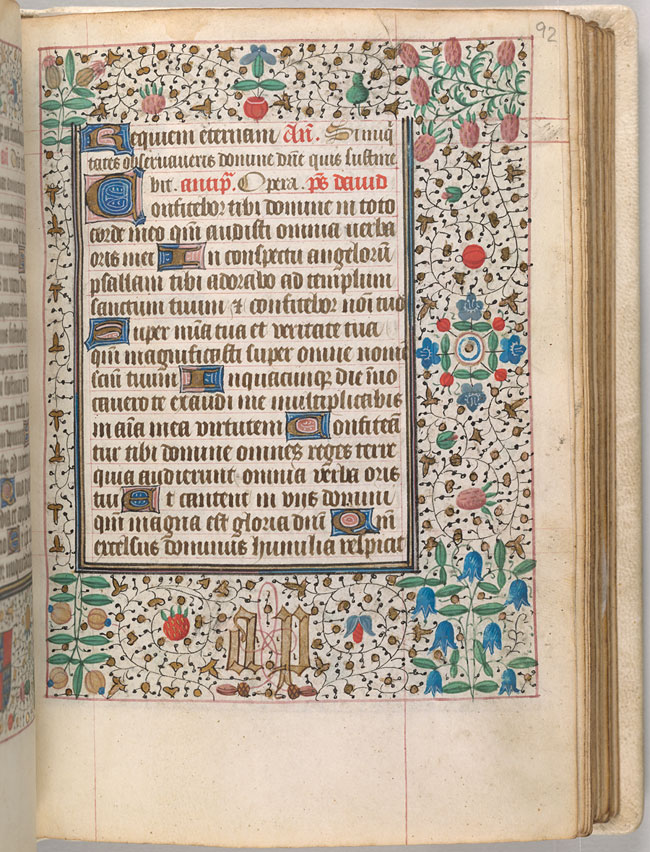 92
Requiem eternam An̄. Si iniq
tates observaveris domine dn̄e quis sustine
bit. antip̄. Opera. p̄s david
Confitebor tibi domine in toto
corde meo qm̄ audisti omnia verba
oris mei In conspectu angeloru᷒
psallam tibi adorabo ad templum
sanctum tuum & confitebor noī tuo
Super mīa tua et veritate tua
qm̄ magnificasti super omne nomē
scm̄ tuum In quacumq die īvo
cavero te exaudi me multiplicabis
in aīa mea virtutem Confiteā
tur tibi domine omnes reges terre
quia audierunt omnia verba oris
tui Et cantent in viis domini
qm̄ magna est gloria dn̄i Qm̄
excelsus dominus humilia respicit